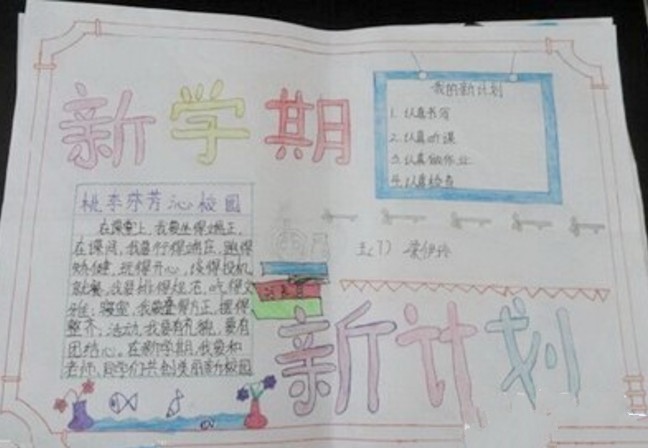 新学期
我的新计划
1. 认真书写
2. 认真听课
3. 认真做作业
4. 认真检查
桃李芬芳沁校园
在课堂上,我要坐得端正,
在课间,我要行得端庄,跑得
矫健,玩得开心,谈得投机
就餐,我要排得短,吃得文
雅;寝室,我要叠得方正,摆得
整齐,活动,我要有礼貌,要有
团结心。在新学期,我要和
老师、同学们共创美丽新校园
五(7)
新计划